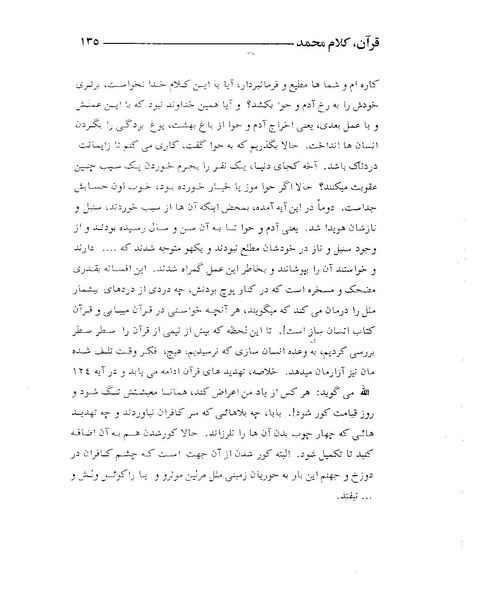 قرآن، کلام محمد ۱۳۵
کاره ام و شما ها مطیع و فرمانبردار، آیا با این کلام خدا نخواست، برتری
خودش را به رخ آدم و حوا بکشد؟ و آیا همین خداوند نبود که با این عملش
و با عمل بعدی، یعنی اخراج آدم و حوا از باغ بهشت، یوغ بردگی را بگردن
انسان ها انداخت. حالا بگذریم که به حوا گفت، کاری می کنم تا زایمانت
دردناک باشد. آخه کجای دنیا، یک نفر را بجرم خوردن یک سیب چنین
عقوبت میکنند؟ حالا اگر حوا موز یا خیار خورده بود، خوب اون حسابش
جداست. دوماً در این آیه آمده، بمحض اینکه آن ها از سیب خوردند، سنبل و
نازشان هویدا شد. یعنی آدم و حوا تا به آن سن و سال رسیده بودند و از
وجود سنبل و ناز در خودشان مطلع نبودند و یکهو متوجه شدند که .... دارند
و خواستند آن را بپوشانند و بخاطر این عمل گمراه شدند. این افسانه بقدری
مضحک و مسخره است که در کنار پوچ بودنش، چه دردی از دردهای بیشمار
ملل را درمان می کند که میگویند، هر آنچه خواستی در قرآن میبابی و قرآن
کتاب انسان ساز است!. تا این لحظه که بیش از نیمی از قرآن را سطر سطر
بررسی کردیم، به وعده انسان سازی که نرسیدیم، هیچ، فکر وقت تلف شده
مان نیز آزارمان میدهد. خلاصه، تهدید های قرآن ادامه می یابد و در آیه ۱۲۴
الله می گوید: هر کس از یاد من اعراض کند، همانا معیشتش تنگ شود و
روز قیامت کور شود!. بابا، چه بلاهائی که سر کافران نیاوردند و چه تهدید
هائی که چهار چوب بدن آن ها را نلرزاند. حالا کورشدن هم به آن اضافه
کنید تا تکمیل شود. البته کور شدن از آن جهت است که چشم کافران در
دوزخ و جهنم این بار به حوریان زمینی مثل مرلین مونرو و یا راکوئل ولش و
... نیفتد.